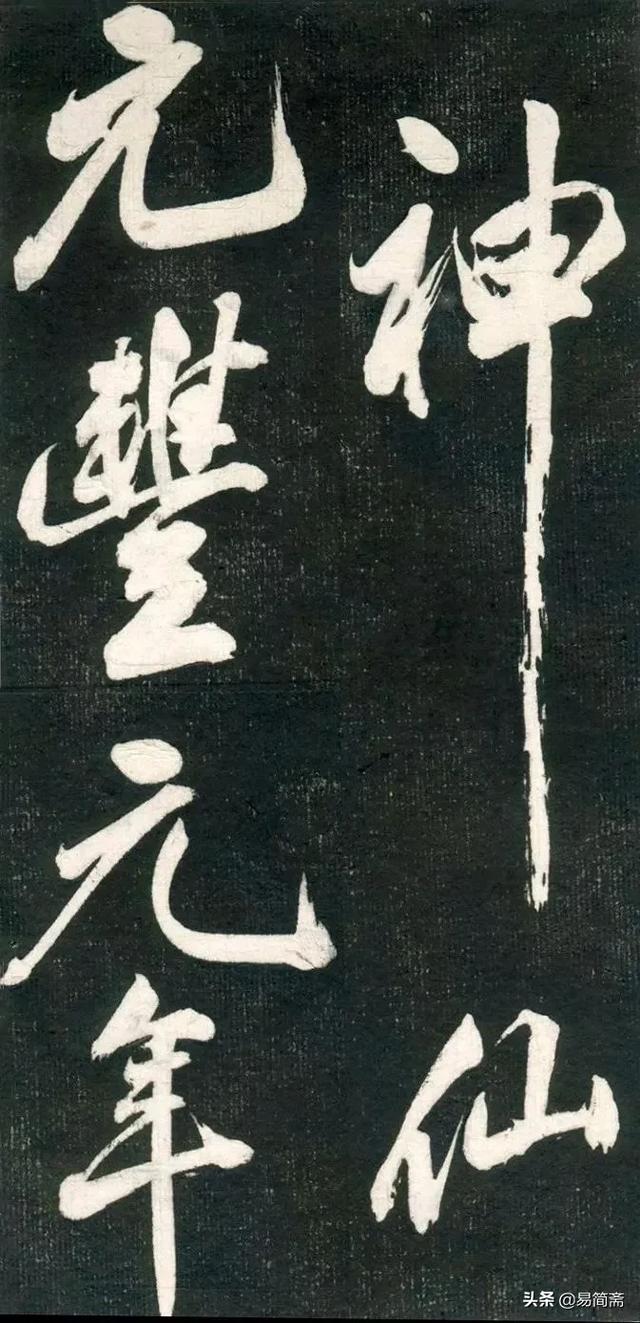 神仙
元豐元年
头条 @易简斋